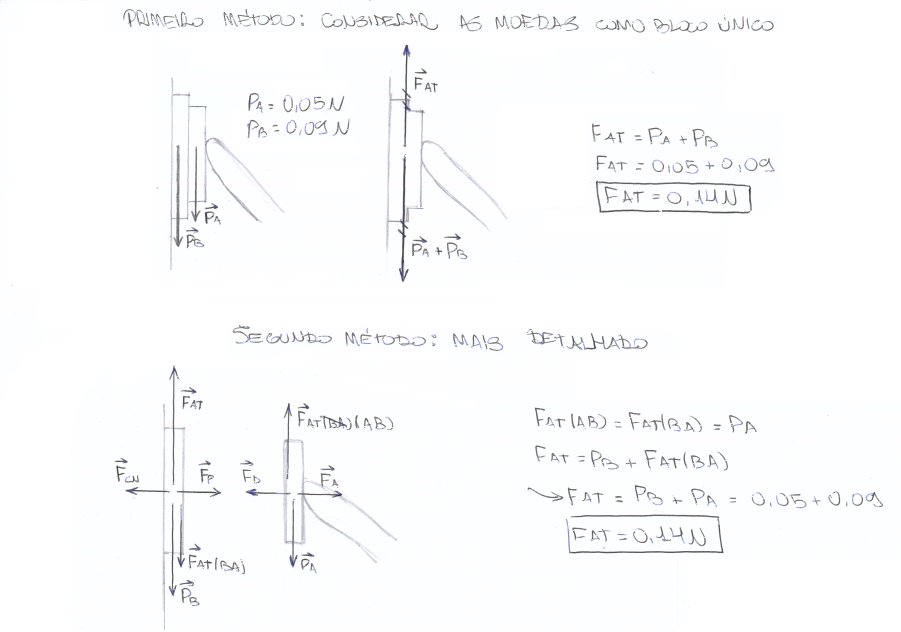 PRIMEIRO MÉTODO: CONSIDERAR AS MOEDAS COMO BLOCO ÚNICO
PA = 0,05N
PB = 0,09N
PA
PB
FAT
PA + PB
FAT = PA + PB
FAT = 0,05 + 0,09
FAT = 0,14N
SEGUNDO MÉTODO: MAIS DETALHADO
FAT
FCN
FP
FAT(BA)
PB
FAT(BA)(AB)
FD
FA
PA
FAT(AB) = FAT(BA) = PA
FAT = PB + FAT(BA)
FAT = PB + PA = 0,05 + 0,09
FAT = 0,14N